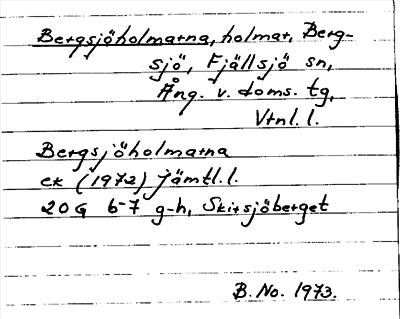 Bergsjöholmarna, holmar, Berg-
sjö, Fjällsjö sn,
Ång. v. doms. tg,
Vtnl. l.
Bergsjöholmarna
ek (1972) Jämtl.l.
20G 6-7 g-h, Skirsjöberget
B. No. 1973.